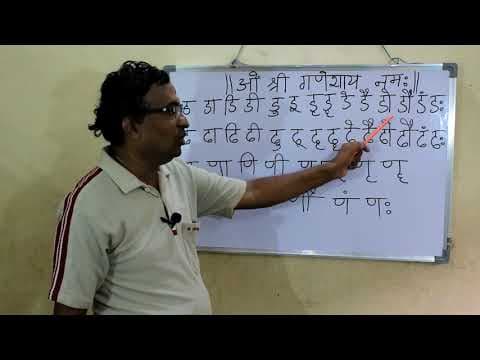 ॥ ओं श्री गणेशाय नमः ॥
ड डा डि डी डु डू डृ डॄ डे डै डो डौ डं डः
ढा ढि ढी ढु ढू ढृ ढॄ ढे ढै ढो ढौ ढं ढः
णा णि णी णृ णॄ
णौ णं णः